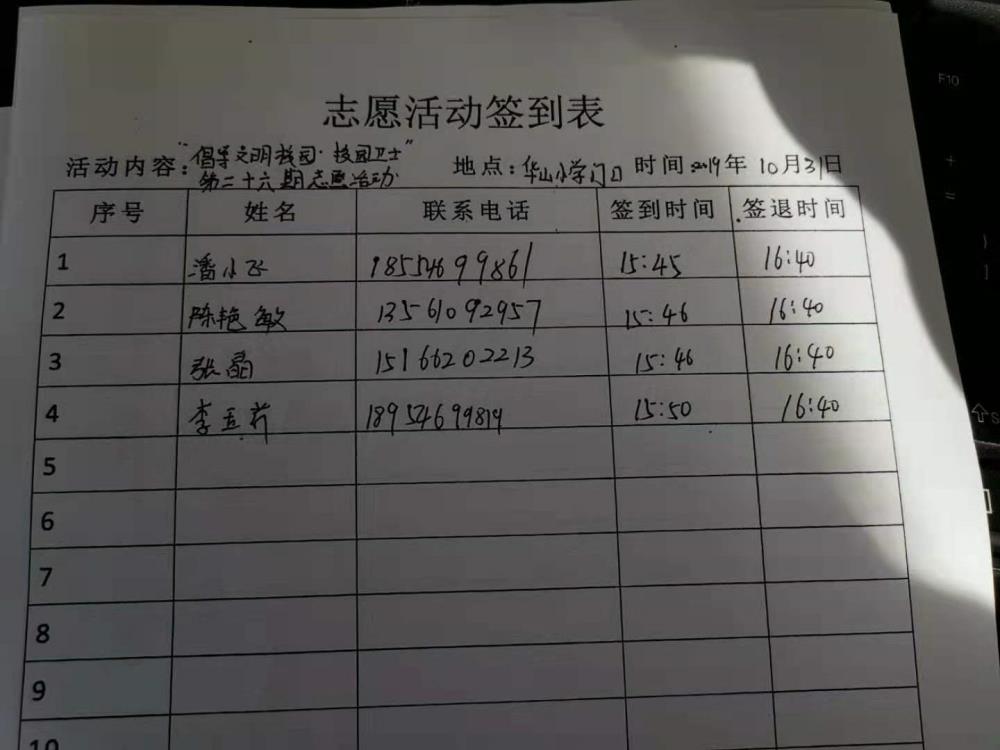 志愿活动签到表
活动内容：“倡导文明校园·校园卫士” 地点：华山小学门口 时间 2019年 10月31日
第二十六期志愿活动
序号 姓名 联系电话 签到时间 签退时间
1 潘小飞 18554699861 15:45 16:40
2 陈艳敏 13561092957 15:46 16:40
3 张晶 15166202213 15:46 16:40
4 李玉芹 18954699819 15:50 16:40
5
6
7
8
9
10
F10